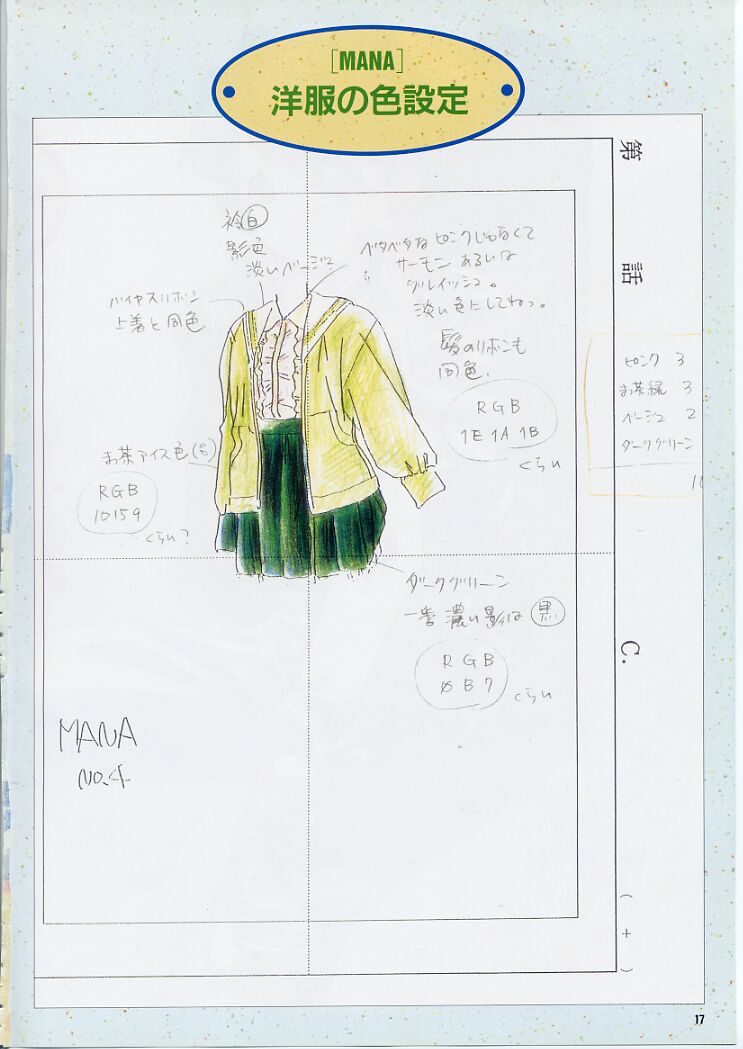 [MANA]
洋服の色設定
第 話
衿白
影色
淡いベージュ
ベタベタなピンクじゃなくて
サーモンあるいは
グレイッシュ。
淡い色にしてねっ。
髪のリボンも
同色。
RGB
1E 1A 1B
くらい
バイヤスリボン
上着と同色
お茶アイス色
RGB
10159
くらい?
ピンク 3
お茶緑 3
ベージュ 2
ダークグリーン
ダークグリーン
一番濃い影は黒
RGB
0 B 7
くらい
C.
MANA
NO.4
( + )
17